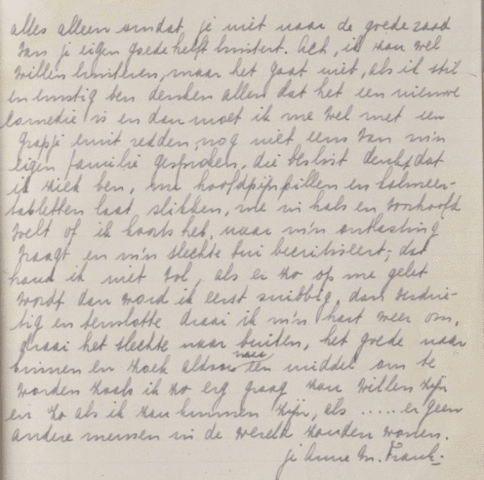 alles alleen omdat je niet naar de goede raad
van je eigen goede helft luistert. Ach, ik zou wel
willen luisteren, maar het gaat niet, als ik stil
en ernstig ben denken allen dat het een nieuwe
comedie is en dan moet ik me wel met een
grapje eruit redden, nog niet eens van m'n
eigen familie gesproken, die beslist denkt, dat
ik ziek ben, me hoofdpijnpillen en kalmeer-
tabletten laat slikken, me in hals en voorhoofd
voelt of ik koorts heb, naar m'n ontlasting
vraagt en m'n slechte bui becritiseert; dat
houd ik niet vol, als er zo op me gelet
wordt dan word ik eerst snibbig, dan verdrie-
tig en tenslotte draai ik m'n hart weer om,
draai het slechte naar buiten, het goede naar
binnen en zoek aldoor naar een middel om te
worden zoals ik zo erg graag zou willen zijn
en zo als ik zou kunnen zijn, als ..... er geen
andere mensen in de wereld zouden wonen.
je Anne M. Frank.